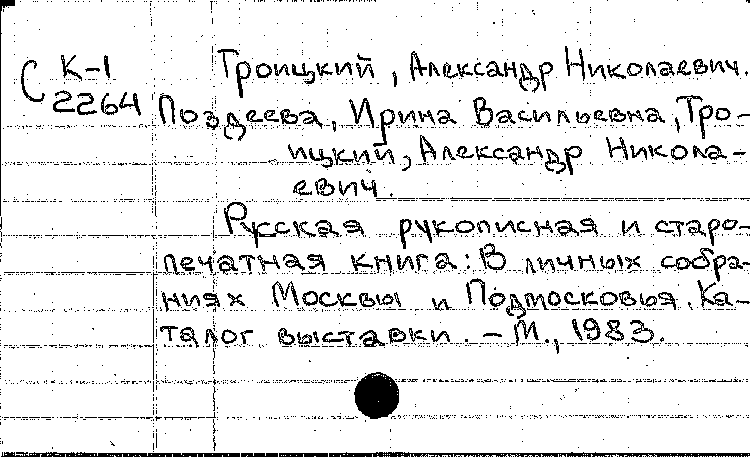 С К-1
2264
Троицкий, Александр Николаевич.
Поздеева, Ирина Васильевна, Тро-
ицкий, Александр Никола-
евич.
Русская рукописная и старо-
печатная книга: В личных собра-
ниях Москвы и Подмосковья. Ка-
талог выставки. – М., 1983.